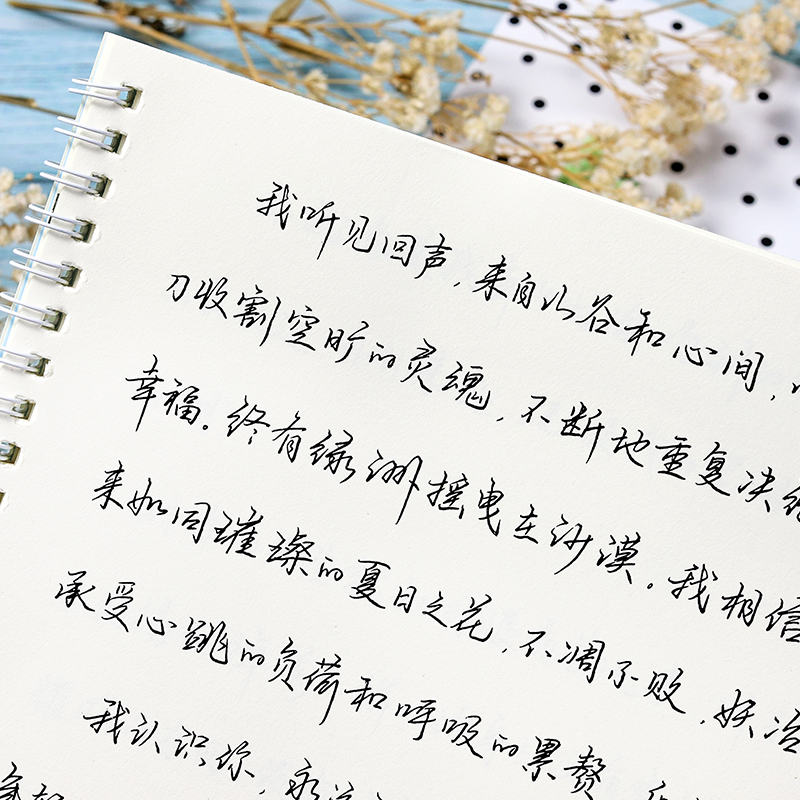 我听见回声，来自山谷和心间，
刀收割空旷的灵魂，不断地重复决
幸福。终有绿洲摇曳在沙漠。我相信
来如同璀璨的夏日之花，不凋不败，妖冶
承受心跳的负荷和呼吸的累赘
我认识你，永